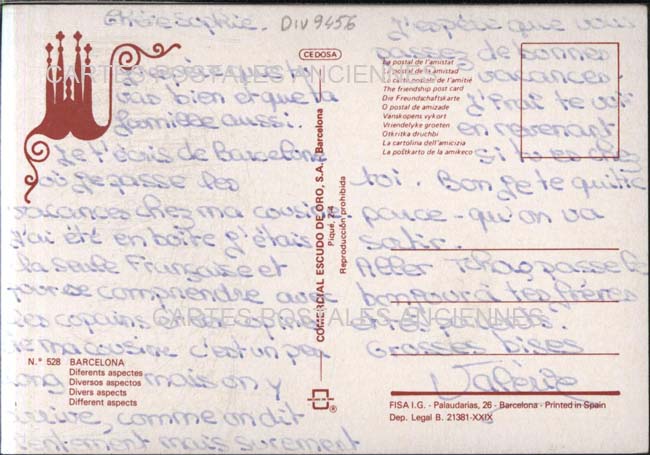 Chère Sophie.
DIV 9456
J'espère que tu
vas bien et que la
famille aussi.
Je t'écris de Barcelone
où je passe les
vacances chez ma cousine
J'ai été en boîte j'étais
la seule Française et
pour se comprendre avec
les copains et les copines
de ma cousine c'est un peu
long mais on y
arrive, comme on dit
lentement mais surement
N.º 528 BARCELONA
Diferents aspectes
Diversos aspectos
Divers aspects
Different aspects
CEDOSA
COMERCIAL ESCUDO DE ORO, S.A. Barcelona
Reproducción prohibida
J'espère que vous
passez de bonnes
vacances.
J'irai te voir
en revenant
si tu es chez
toi. Bon je te quitte
parce-qu'on va
sortir.
Aller Tchao passe le
bonjour à tes frères
et tes parents.
Grosses bises
Valérie
La postal de l'amistat
La postal de la amistad
La carte postale de l'amitié
The friendship post card
Die Freundschaftskarte
O postal de amizade
Vanskopens vykort
Vriendelyke groeten
Otkritka druchbi
La cartolina dell'amicizia
La poŝtkarto de la amikeco
FISA I.G. - Palaudarias, 26 - Barcelona - Printed in Spain
Dep. Legal B. 21381-XXIX
CARTES POSTALES ANCIENNES
CARTES POSTALES ANCIENNES